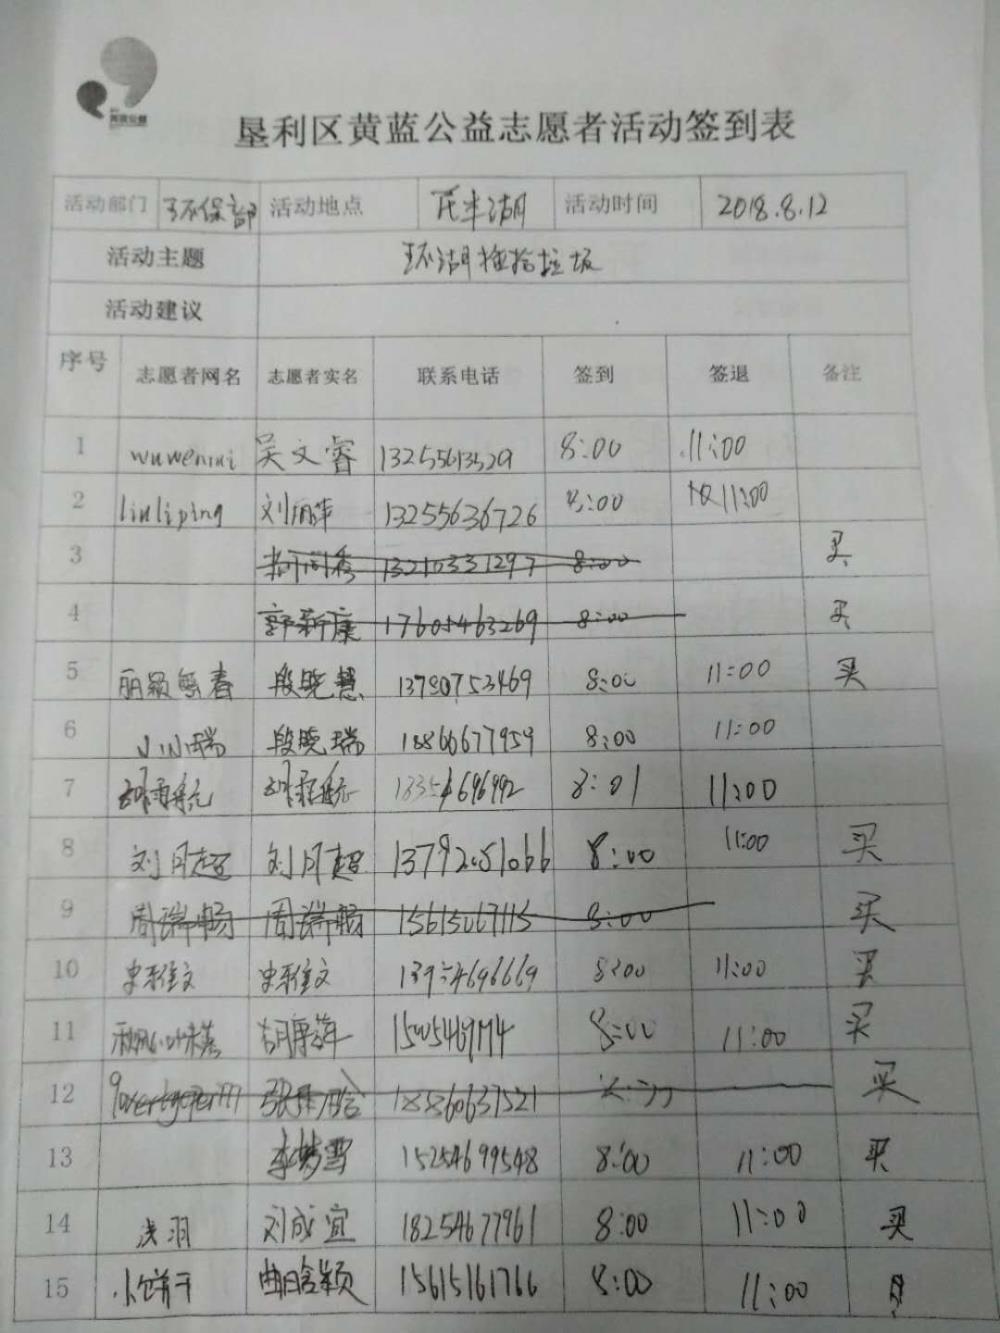 垦利区黄蓝公益志愿者活动签到表
活动部门 环保部 活动地点 民丰湖 活动时间 2018.8.12
活动主题 环湖捡拾垃圾
活动建议
序号 志愿者网名 志愿者实名 联系电话 签到 签退 备注
1 wuwenrui 吴文睿 13255613529 8:00 11:00
2 liuliping 刘丽萍 13255636726 8:00 11:00
3 13210331297 8:00 买
4 郭新康 17601463269 8:00 买
5 段晓慧 13780753469 8:00 11:00 买
6 小小瑞 段晓瑞 18866677959 8:00 11:00
7 8:01 11:00
8 刘月超 刘月超 13792051066 8:00 11:00 买
9 周瑞畅 周瑞畅 15615067115 8:00 买
10 8:00 11:00 买
11 胡康萍 8:00 11:00 买
12 18860631521 买
13 李梦雪 15254699548 8:00 11:00 买
14 刘成宜 18254677961 8:00 11:00 买
15 小饼干 曲晗颖 15615161766 8:00 11:00